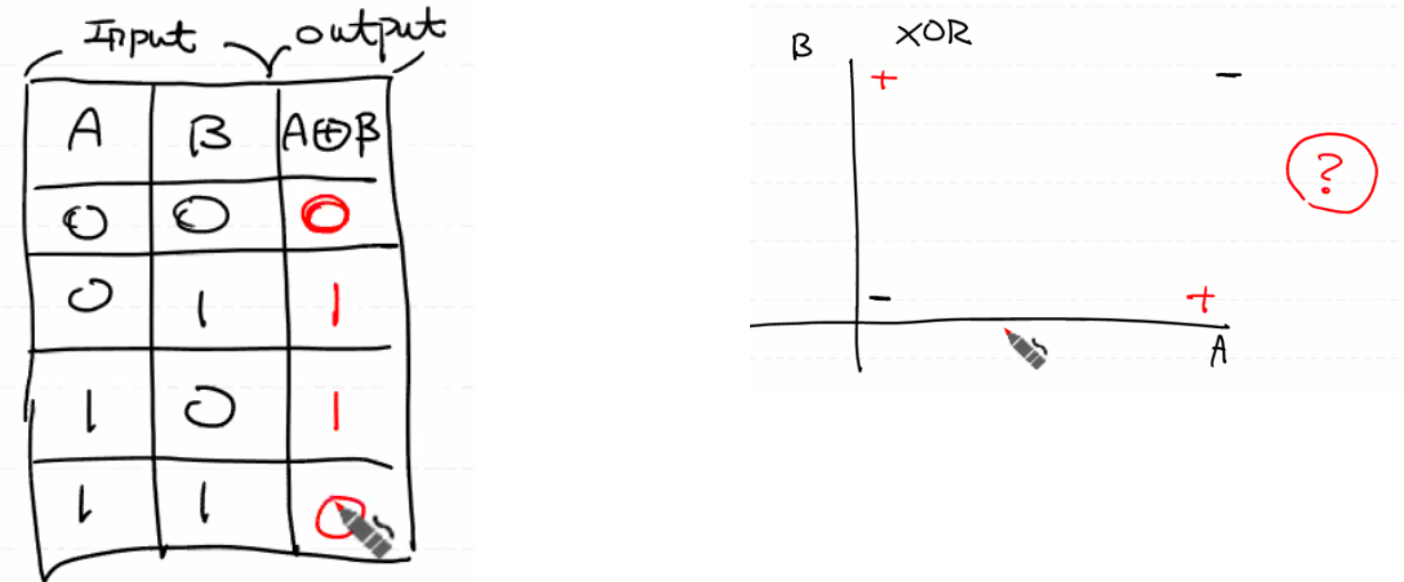 Input output
A B A⊕B
0 0 0
0 1 1
1 0 1
1 1 0
B XOR
+ -
?
- +
A